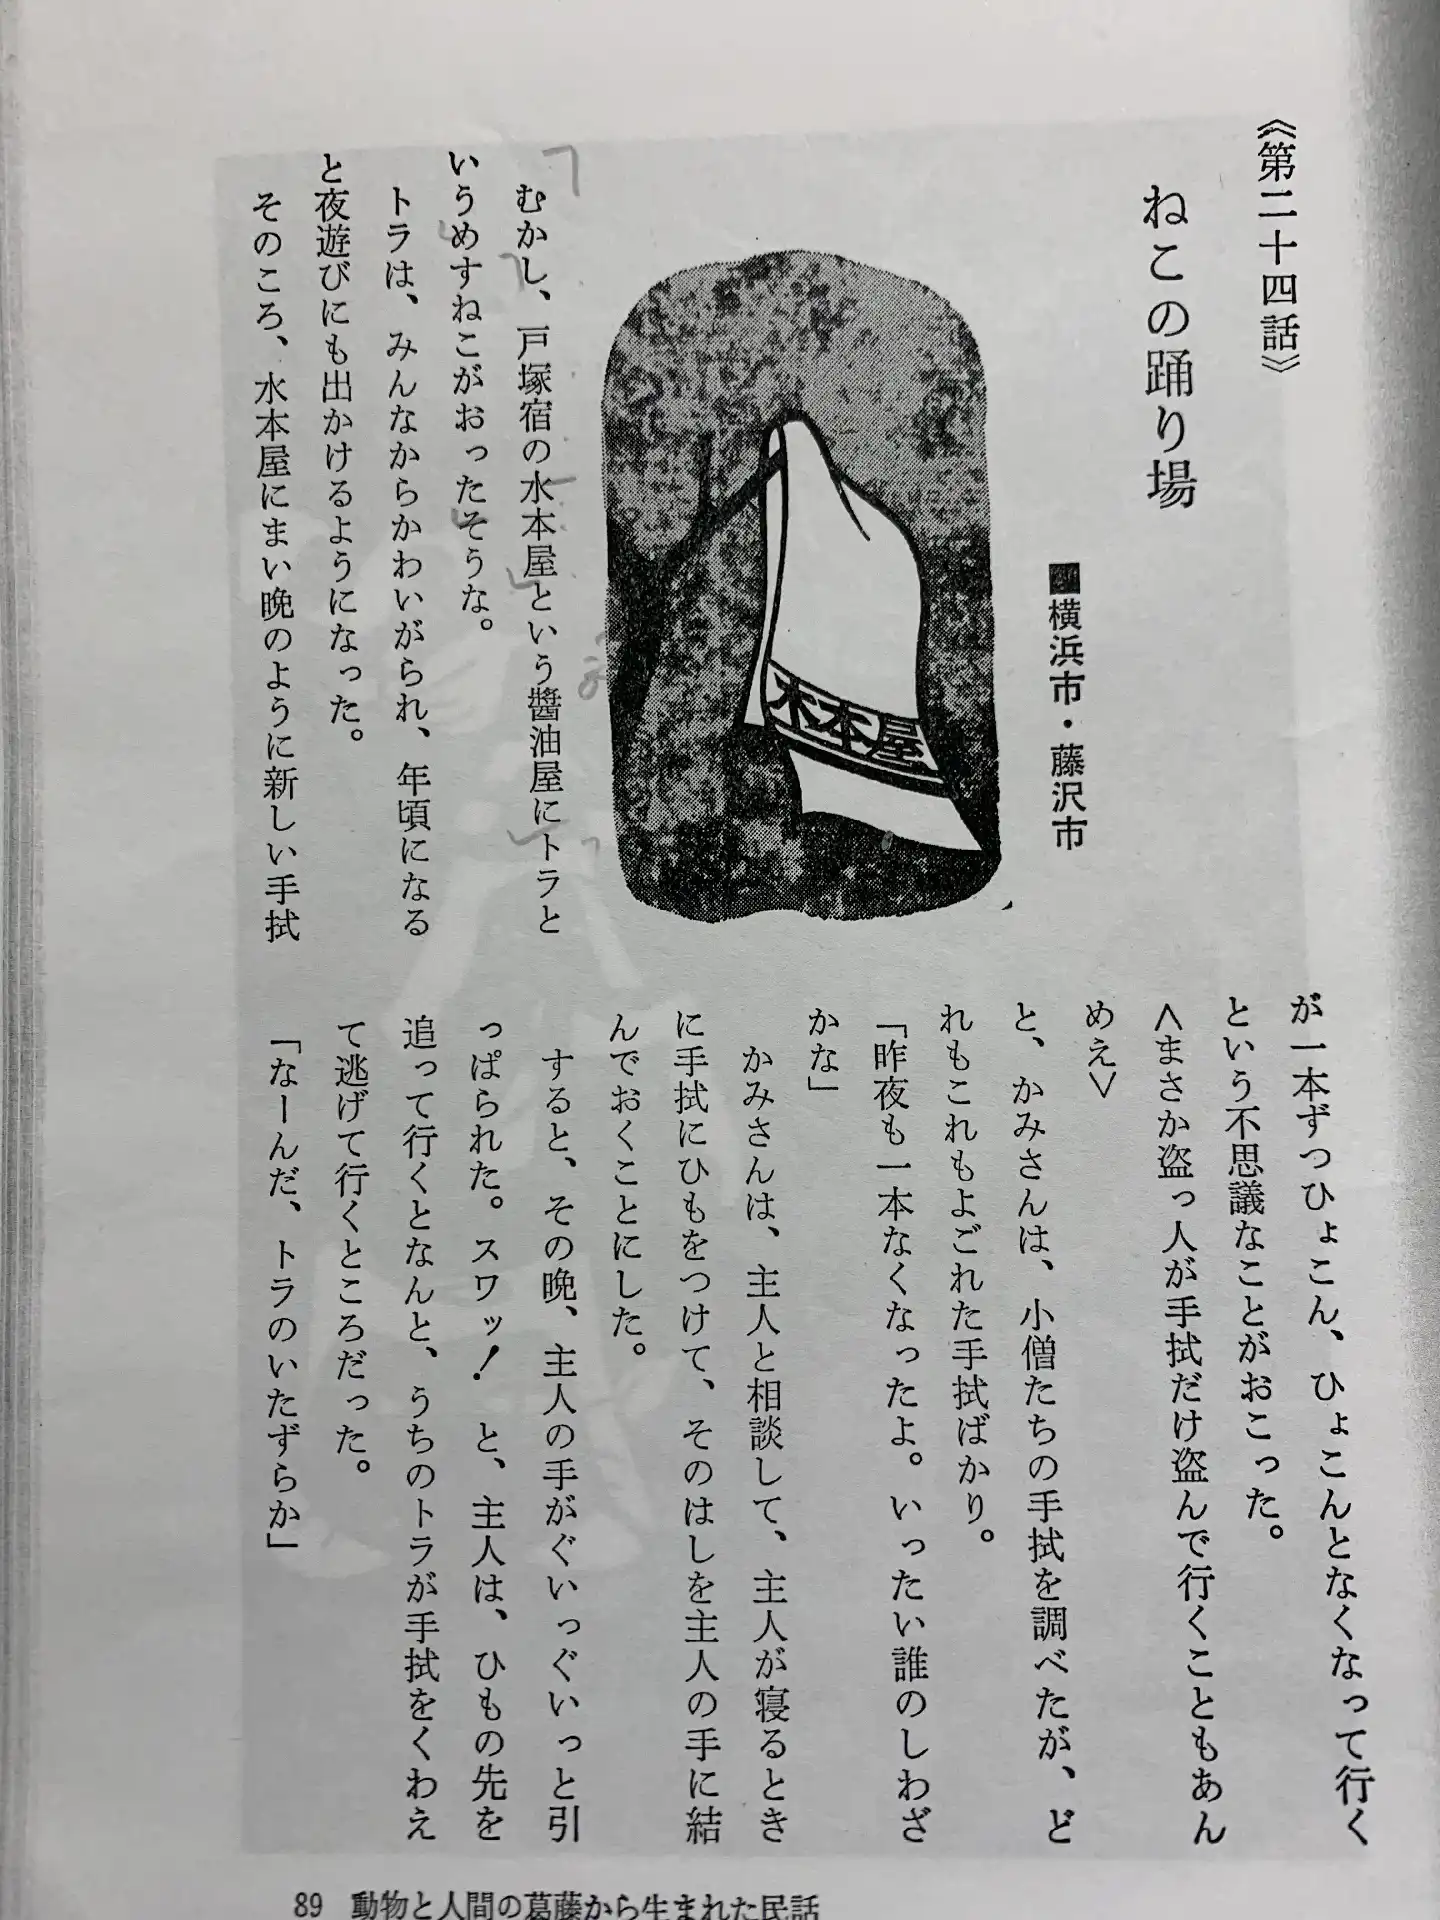 《第二十四話》
ねこの踊り場
■横浜市・藤沢市
水本屋
むかし、戸塚宿の水本屋という醬油屋にトラと
いうめすねこがおったそうな。
トラは、みんなからかわいがられ、年頃になる
と夜遊びにも出かけるようになった。
そのころ、水本屋にまい晩のように新しい手拭
が一本ずつひょこん、ひょこんとなくなって行く
という不思議なことがおこった。
<まさか盗っ人が手拭だけ盗んで行くこともあん
めえ>
と、かみさんは、小僧たちの手拭を調べたが、ど
れもこれもよごれた手拭ばかり。
「昨夜も一本なくなったよ。いったい誰のしわざ
かな」
かみさんは、主人と相談して、主人が寝るとき
に手拭にひもをつけて、そのはしを主人の手に結
んでおくことにした。
すると、その晩、主人の手がぐいっぐいっと引
っぱられた。スワッ！と、主人は、ひもの先を
追って行くとなんと、うちのトラが手拭をくわえ
て逃げて行くところだった。
「なーんだ、トラのいたずらか」
89 動物と人間の葛藤から生まれた民話